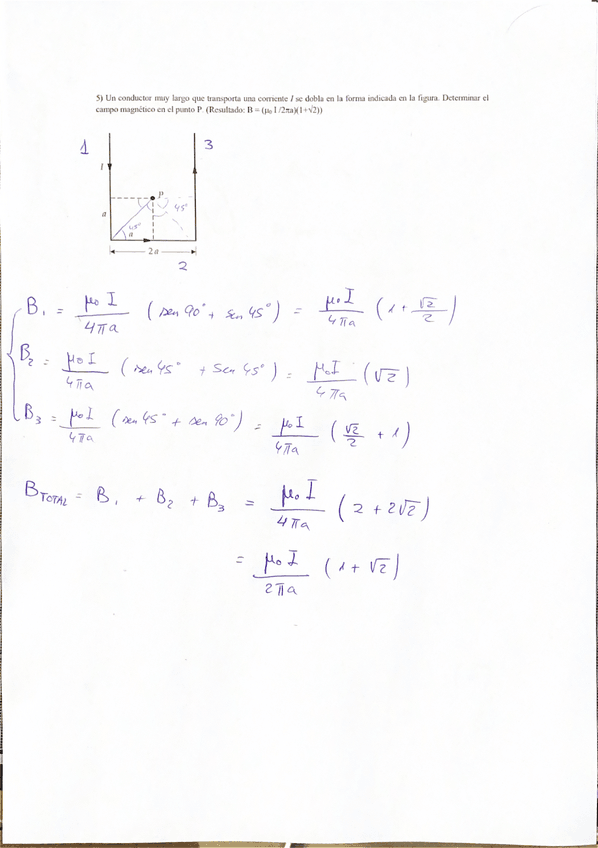 5) Un conductor muy largo que transporta una corriente I se dobla en la forma indicada en la figura. Determinar el
campo magnético en el punto P. (Resultado: B = (μ₀ I /2πa)(1+√2))
1
3
I
P
45°
a
45°
a
2 a
2
B₁ = μ₀ I / 4πa (sen 90° + sen 45°) = μ₀ I / 4πa (1 + √2/2)
B₂ = μ₀ I / 4πa (sen 45° + sen 45°) = μ₀ I / 4πa (√2)
B₃ = μ₀ I / 4πa (sen 45° + sen 90°) = μ₀ I / 4πa (√2/2 + 1)
B_TOTAL = B₁ + B₂ + B₃ = μ₀ I / 4πa (2 + 2√2)
= μ₀ I / 2πa (1 + √2)